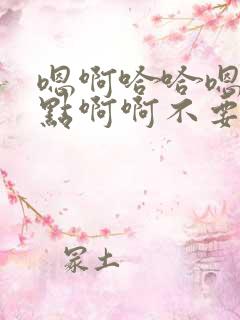 嗯啊哈哈嗯
點啊啊不要
冢土